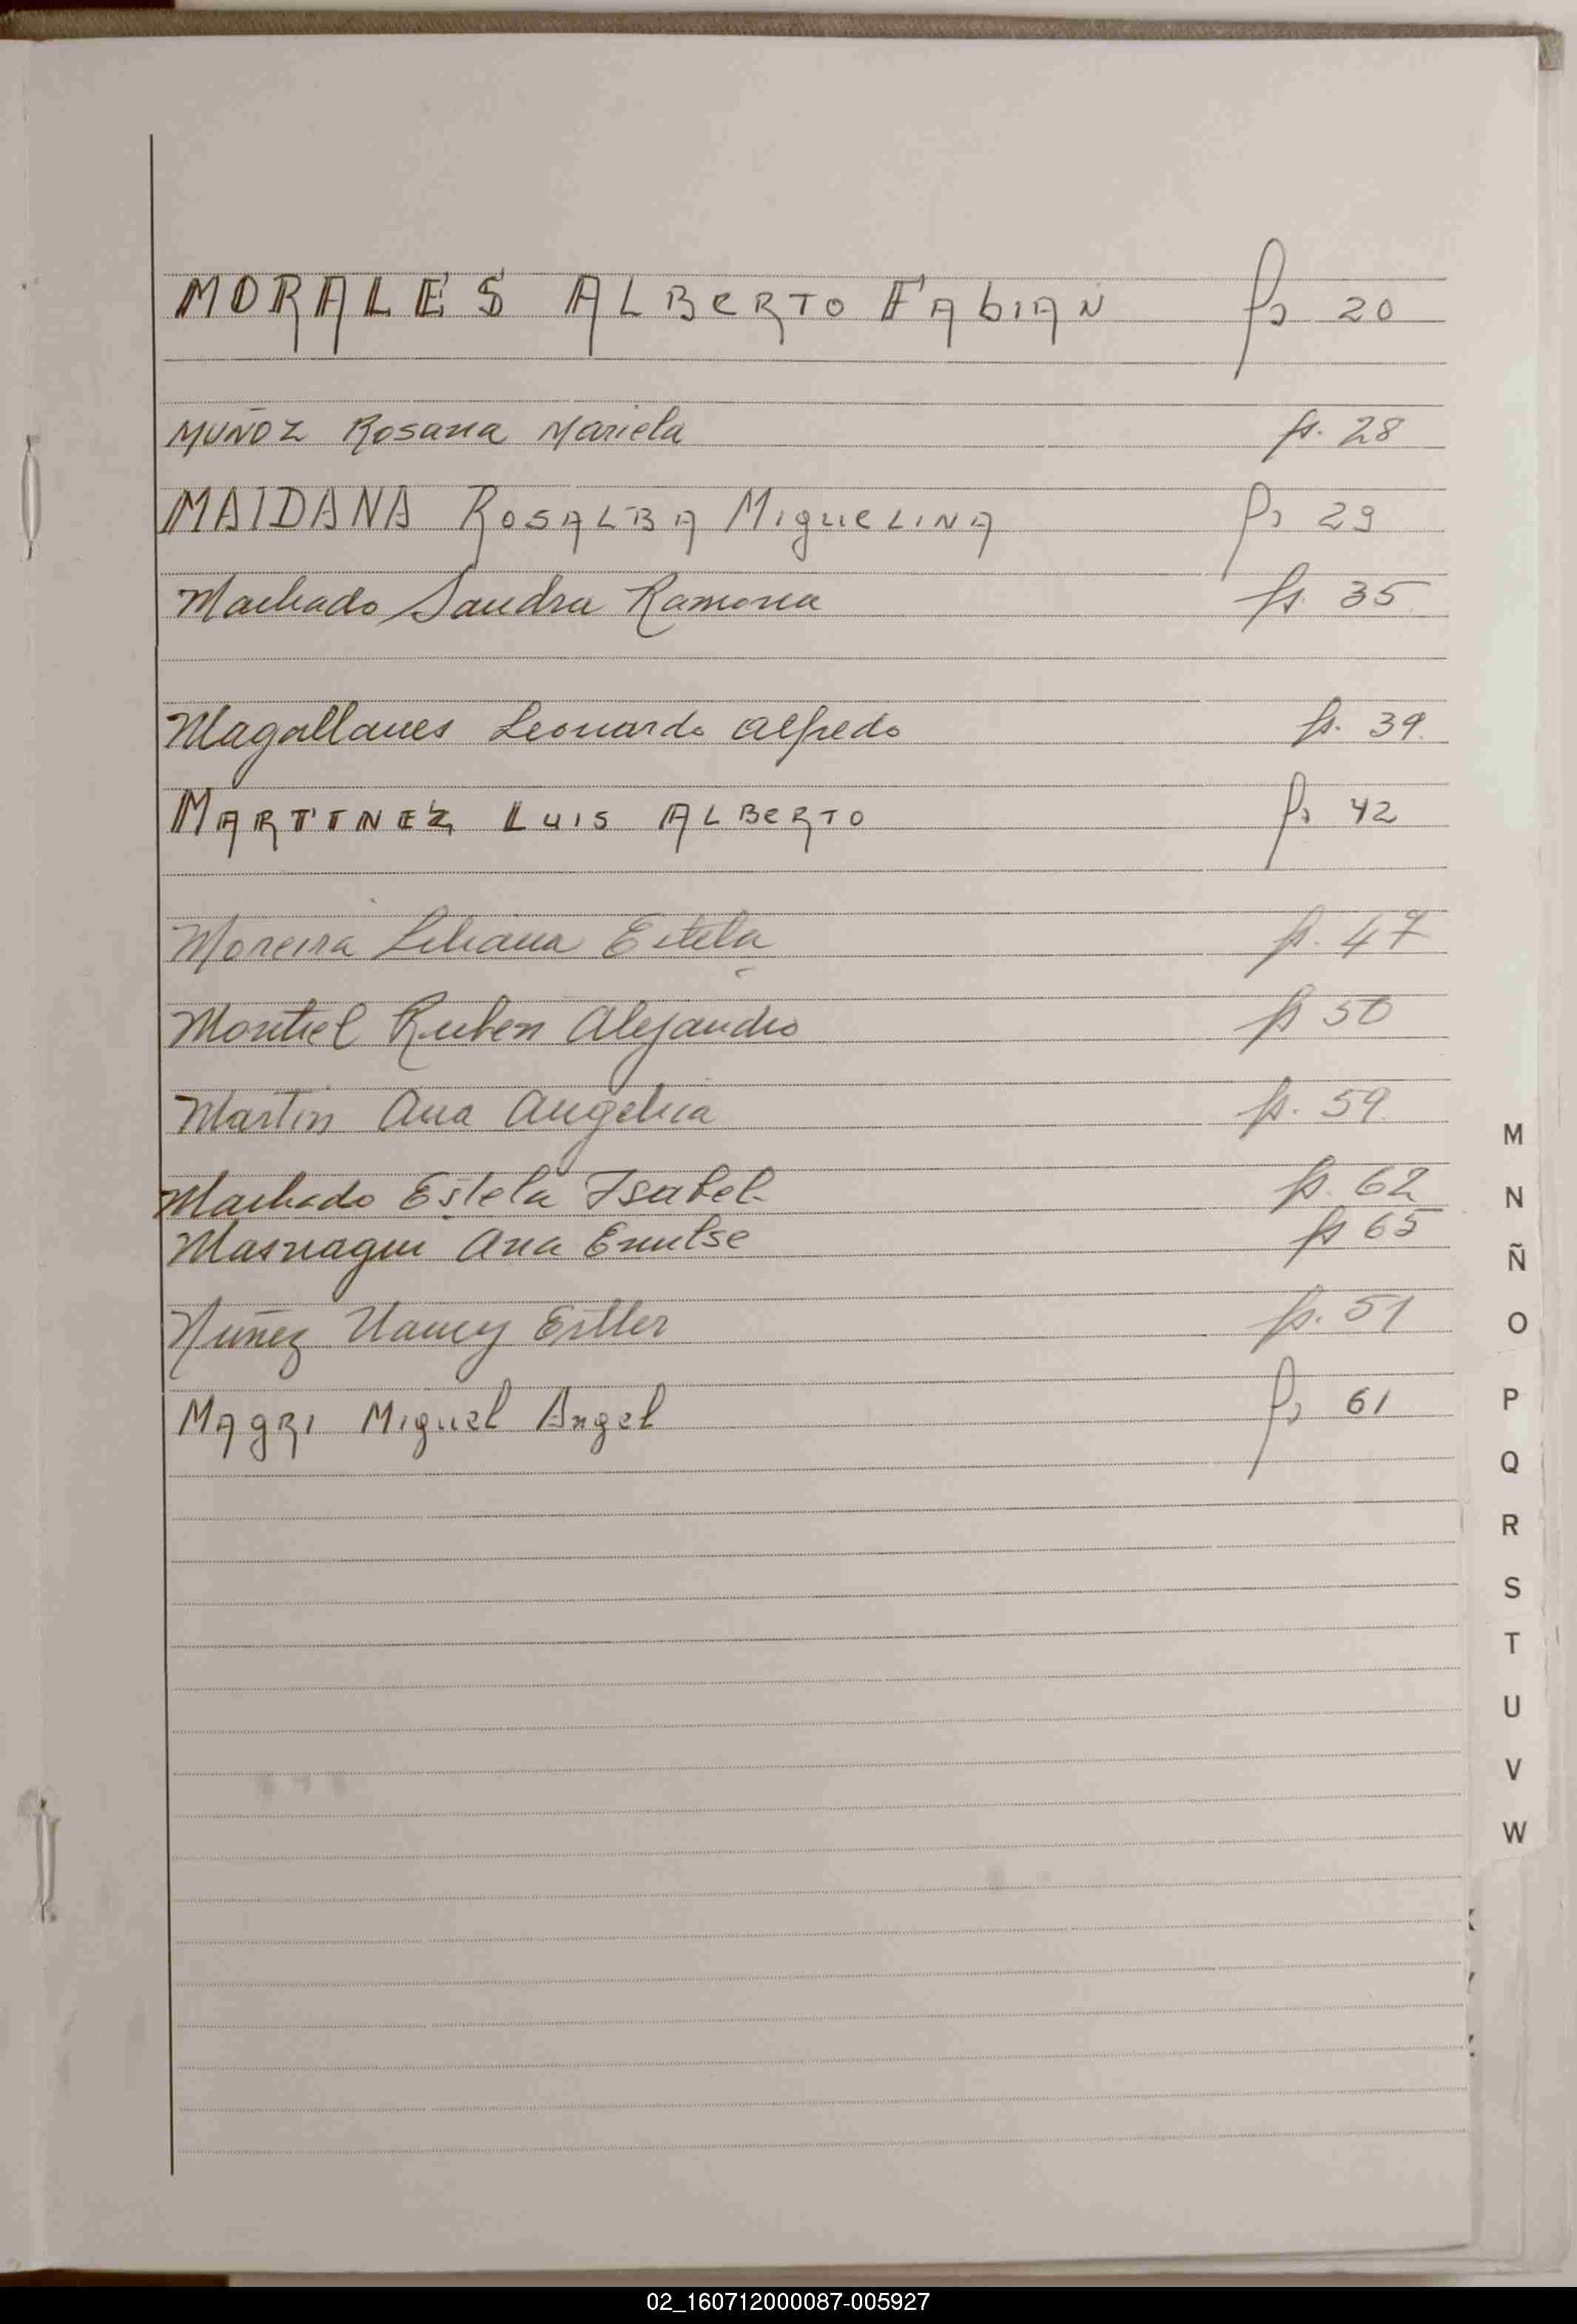 MORALES ALBERTO FABIAN fs 20
MUÑOZ Rosana Mariela fs. 28
MAIDANA ROSALBA MIGUELINA fs 29
Machado Sandra Ramona fs. 35
Magallanes Leonardo Alfredo fs. 39
MARTINEZ LUIS ALBERTO fs 42
Moreira Liliana Estela fs. 47
Montiel Ruben Alejandro fs 50
Martin Ana Angelica fs. 59
Machado Estela Isabel fs. 62
Ana fs 65
Nuñez Nancy Esther fs. 51
MAGRI Miguel Angel fs 61
M
N
Ñ
O
P
Q
R
S
T
U
V
W
02_160712000087-005927